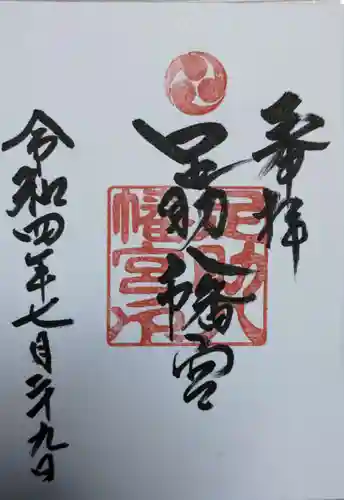 奉拝
足助八幡宮
足助八幡宮印
令和四年七月二十九日